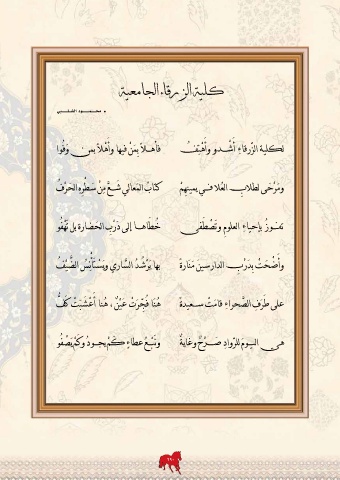 كلية الزرقاء الجامعية
• محمود الشلبي
لكلية الزرقاءِ أَشْدو وأَهْتِفُ فأهلاً بمَنْ فيها وأهْلاً بمن وَفُوا
ومَرْحى لطلابِ العُلا في يمينهِمْ كتابُ المعالي شَعَّ مِنْ سَطْرِهِ الحَرْفُ
تفوزُ بإحياءِ العلومِ وتَصْطَفي خُطاها إلى دَرْبِ الحضارةِ بل تَهْفُو
وأَضْحَتْ بِدَرْبِ الدارسينَ مَنارةً بها يَرْشُدُ السَّاري ويَسْتأْنِسُ الضَّيْفُ
على طَرَفِ الصَّحراءِ قامَتْ سعيدةً هُنا فُجِّرَتْ عَيْنٌ، هُنا أَعْشَبَتْ كَفُّ
هي اليومَ للرّوادِ صَرْحٌ وغايةٌ ونَبْعُ عطاءٍ كَمْ يجودُ وكَمْ يَصْفُو